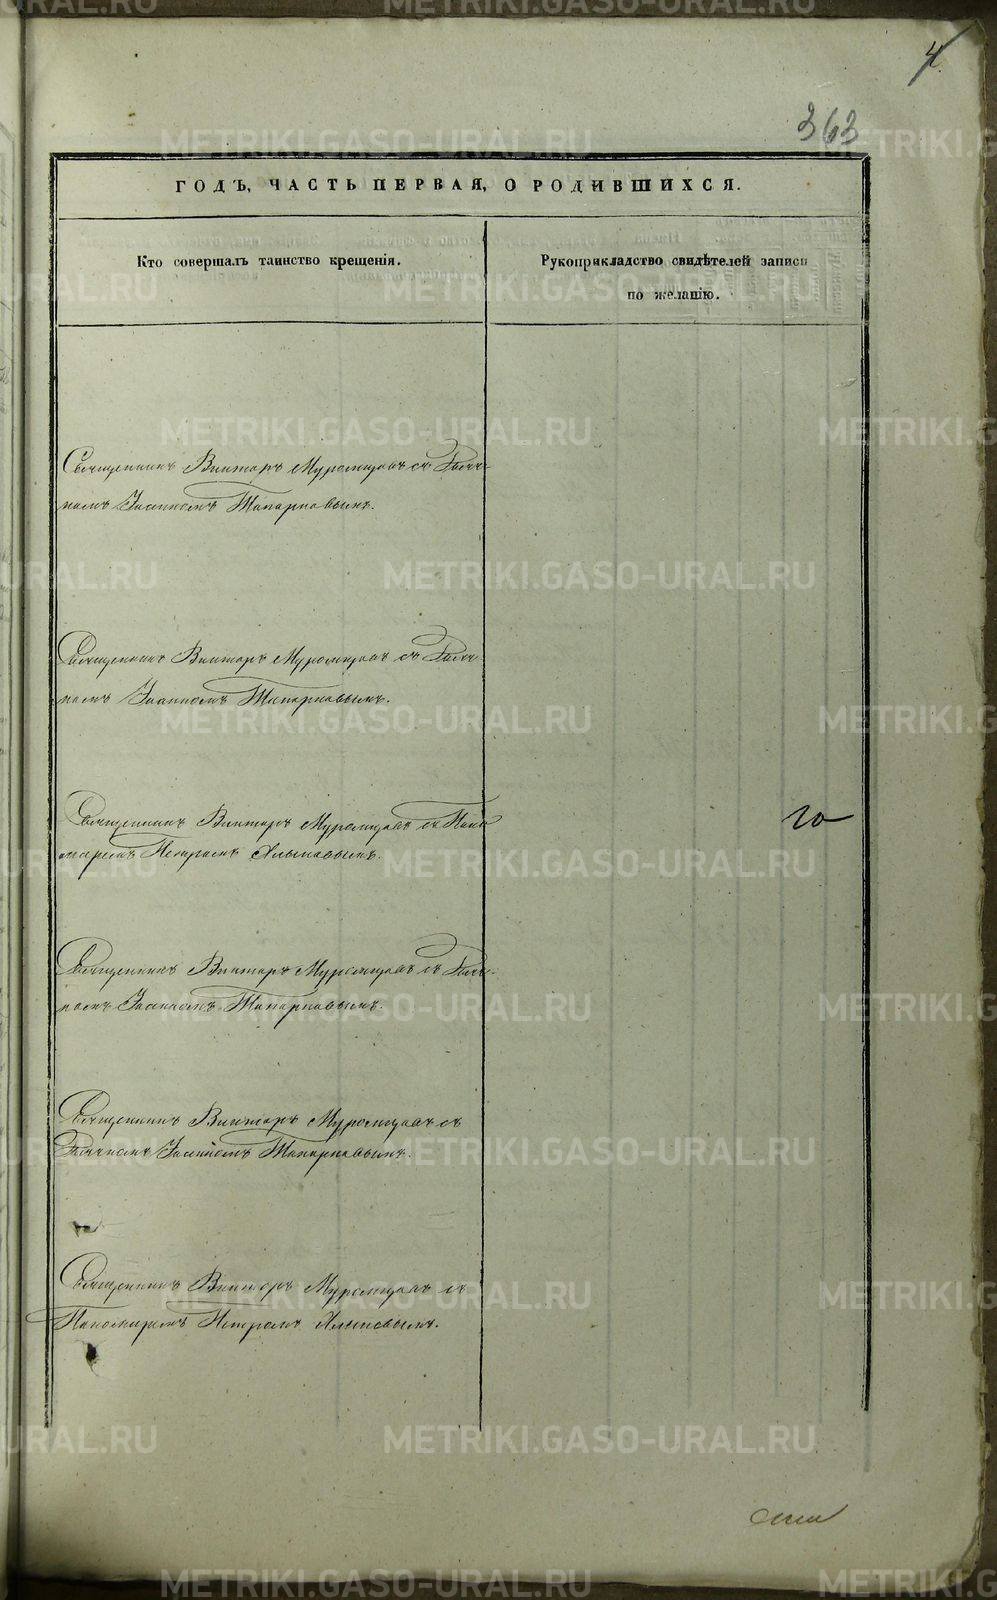 4.
363
ГОДЪ, ЧАСТЬ ПЕРВАЯ, О РОДИВШИХСЯ.
Кто совершалъ таинство крещенія.
Рукоприкладство свидѣтелей записи
по желанію.
Священникъ Викторъ Муромцовъ съ Дьяч-
комъ Іоанномъ Топорковымъ.
Священникъ Викторъ Муромцовъ съ Дьяч-
комъ Іоанномъ Топорковымъ.
Священникъ Викторъ Муромцовъ съ Поно-
маремъ Петромъ Хлыновымъ.
го
Священникъ Викторъ Муромцовъ съ Дьяч-
комъ Іоанномъ Топорковымъ.
Священникъ Викторъ Муромцовъ съ
Дьячкомъ Іоанномъ Топорковымъ.
Священникъ Викторъ Муромцовъ съ
Пономаремъ Петромъ Хлыновымъ.
METRIKI.GASO-URAL.RU